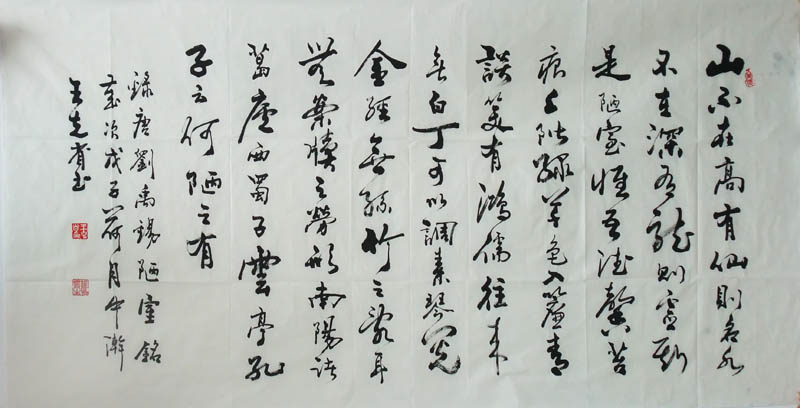 山不在高有仙則名水
不在深有龍則靈斯
是陋室惟吾德馨苔
痕上階緑草色入簾青
談笑有鴻儒往來
無白丁可以調素琴閱
金經無絲竹之亂耳
無案牘之勞形南陽諸
葛廬西蜀子雲亭孔
子云何陋之有
錄唐劉禹錫陋室銘
歲次戊子荷月中澣
王先书